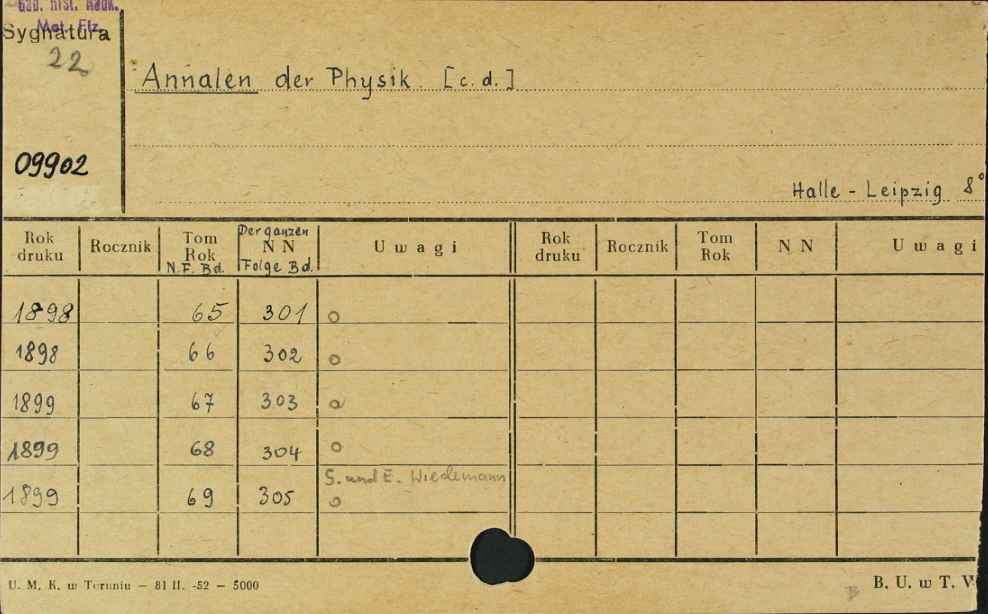 Bad. hist. nauk.
Mat. Fiz.
Sygnatura
22
Annalen der Physik. [c.d.]
09902
Halle - Leipzig 8°
Rok druku Rocznik Tom Rok N.F. Bd. Der ganzen N N Folge Bd. Uwagi Rok druku Rocznik Tom Rok N N Uwagi
1898 65 301 o
1898 66 302 o
1899 67 303 o
1899 68 304 o
S. und E. Wiedemann
1899 69 305 o
U. M. K. w Toruniu — 81 II. -52 — 5000
B. U. w T.